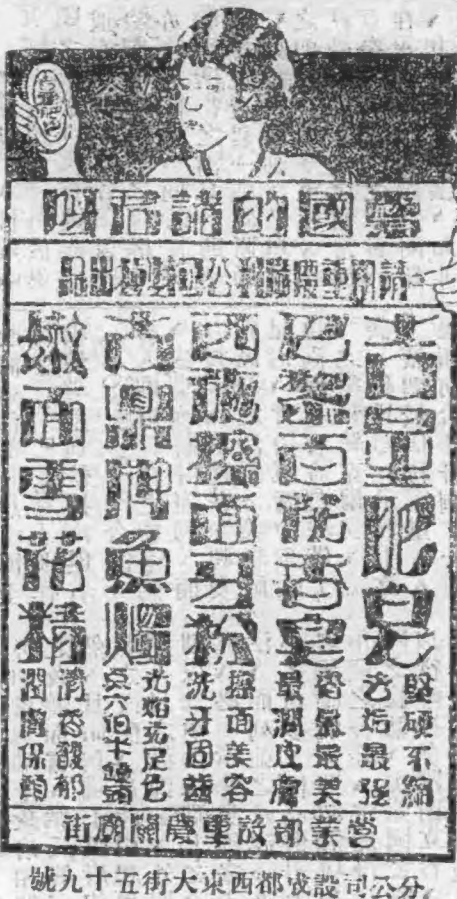 愛國的諸君呀
請用重慶利公司出品
吉星肥皂
堅硬不縮
去垢最强
巴黎百花香皂
香氣最美
最潤皮膚
西施擦面牙粉
擦面美容
洗牙固齒
古鼎牌魚燭
光焰充足色
六伯半鐘頭
嫩面雪花精
清香馥郁
潤膚保顏
營業部設重慶關廟街
分公司設成都西東大街五十九號